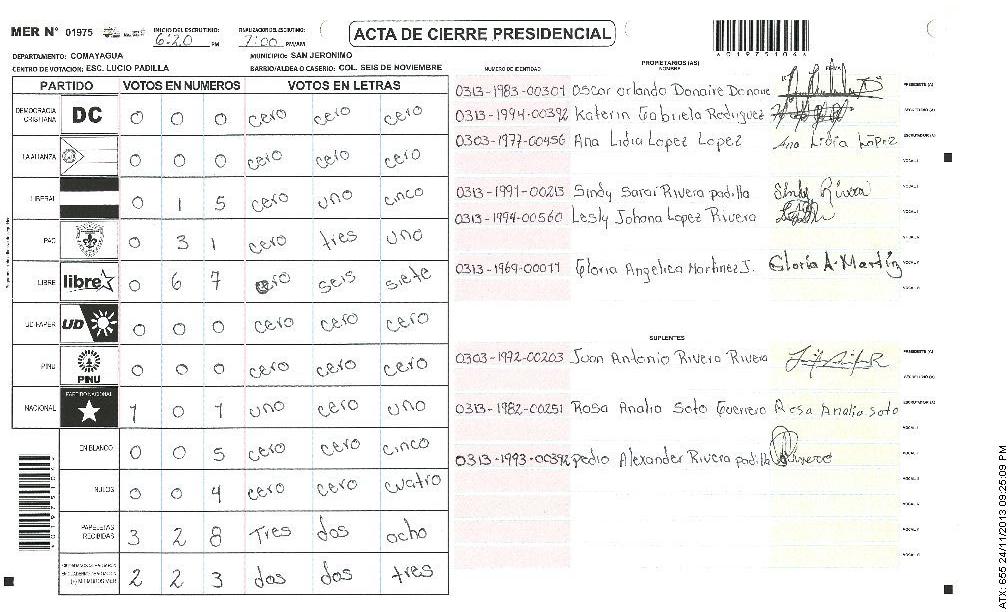 MER N° 01975 INICIO DEL ESCRUTINIO: 6:20 PM FINALIZACION DEL ESCRUTINIO: 7:00 PM/AM
ACTA DE CIERRE PRESIDENCIAL
0197510 4
DEPARTAMENTO: COMAYAGUA MUNICIPIO: SAN JERONIMO
CENTRO DE VOTACION: ESC. LUCIO PADILLA BARRIO/ALDEA O CASERIO: COL. SEIS DE NOVIEMBRE
PARTIDO VOTOS EN NUMEROS VOTOS EN LETRAS
DEMOCRACIA CRISTIANA DC 0 0 0 cero cero cero
LA ALIANZA 0 0 0 cero cero cero
LIBERAL 0 1 5 cero uno cinco
PAC 0 3 1 cero tres uno
LIBRE libre 0 6 7 cero seis siete
UD-FAPER UD 0 0 0 cero cero cero
PINU PINU 0 0 0 cero cero cero
NACIONAL PARTIDO NACIONAL 1 0 1 uno cero uno
EN BLANCO 0 0 5 cero cero cinco
NULOS 0 0 4 cero cero cuatro
PAPELETAS RECIBIDAS 3 2 8 Tres dos ocho
(+) MIEMBROS MER 2 2 3 dos dos tres
NUMERO DE IDENTIDAD PROPIETARIOS (AS) NOMBRE FIRMA
0313-1983-00301 Oscar Orlando Donaire Donaire PRESIDENTE (A)
0313-1994-00392 Katerin Gabriela Rodriguez SECRETARIO (A)
0303-1977-00456 Ana Lidia Lopez Lopez Ana Lidia López ESCRUTADOR (A)
VOCAL I
0313-1991-00213 Sindy Sarai Rivera padilla Sindy Rivera VOCAL II
0313-1994-00560 Lesly Johana Lopez Rivera
0313-1969-00011 Gloria Angelica Martinez J. Gloria A. Martínez
SUPLENTES
0303-1992-00203 Juan Antonio Rivera Rivera PRESIDENTE (A)
SECRETARIO (A)
0313-1982-00251 Rosa Analia Soto Guerrero Rosa Analia Soto ESCRUTADOR (A)
0313-1993-00392 Pedro Alexander Rivera padilla
ATX: 655 24/11/2013 09:25:09 PM